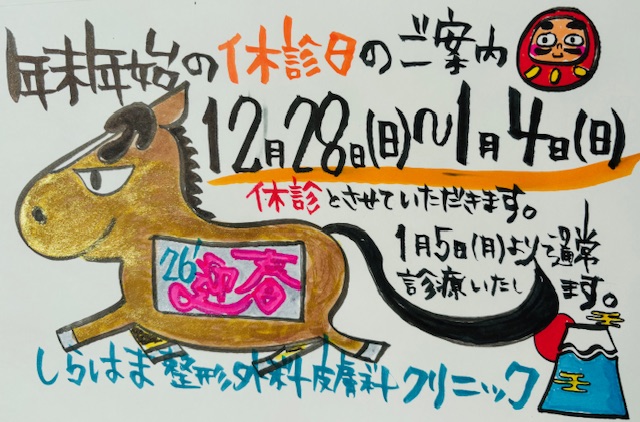 年末年始の休診日のご案内
12月28日(日)〜1月4日(日)
休診とさせていただきます。
1月5日(月)より通常
診療いたします。
26'迎春
しらはま整形外科皮膚科クリニック